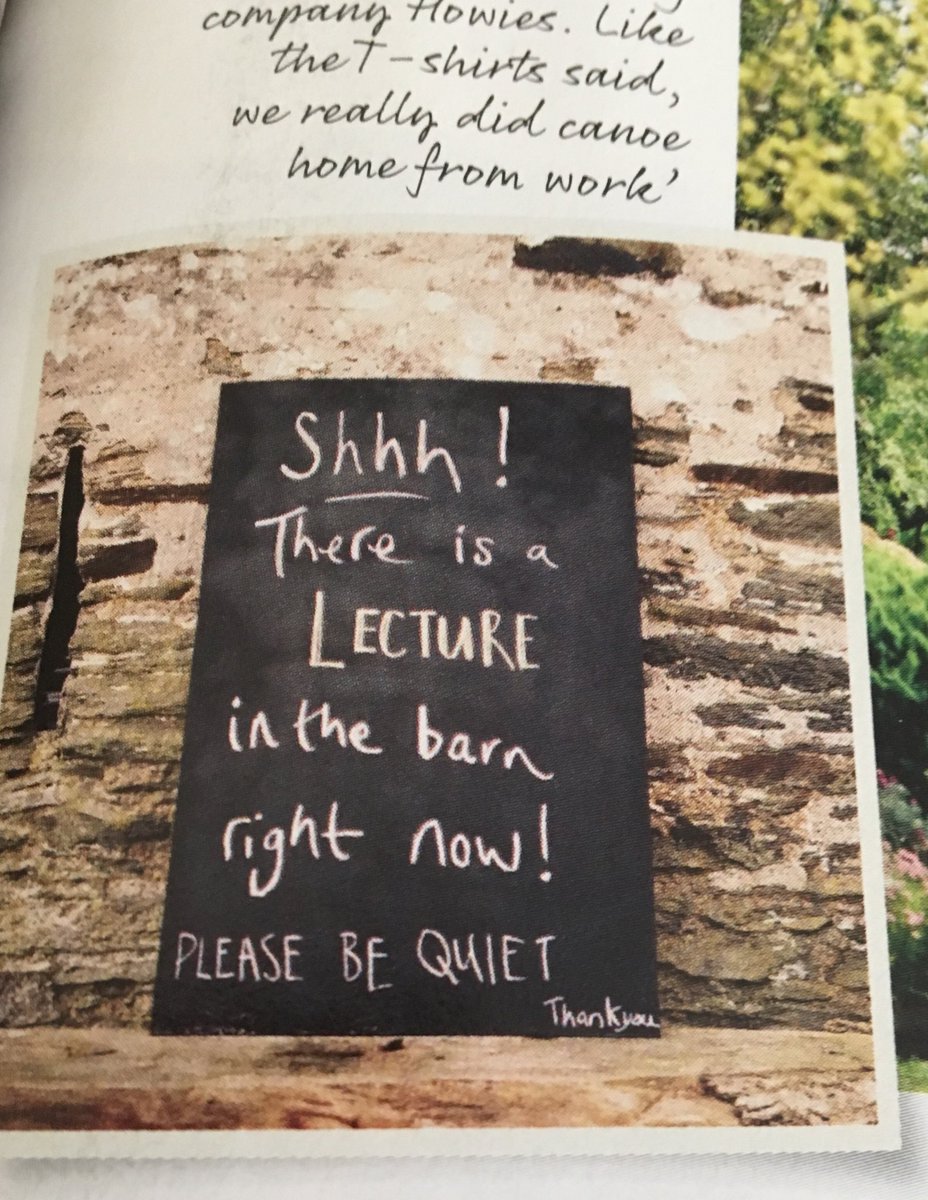 company Howies. Like
the T-shirts said,
we really did canoe
home from work’
Shhh!
There is a
LECTURE
in the barn
right now!
PLEASE BE QUIET
Thankyou